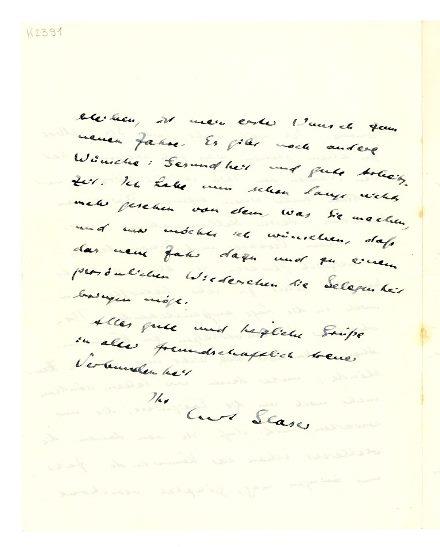 K2391
bleiben, ist mein erster Wunsch zum
neuen Jahre. Es gibt noch andere
Wünsche: Gesundheit und gute Arbeits-
zeit. Ich habe nun schon lange nichts
mehr gesehen von dem, was Sie machen,
und nur möchte ich wünschen, daß
das neue Jahr dazu und zu einem
persönlichen Wiedersehen die Gelegenheit
bringen möge.
Alles gute und herzliche Grüße
in alter freundschaftlich treuer
Verbundenheit
Ihr
Curt Glaser